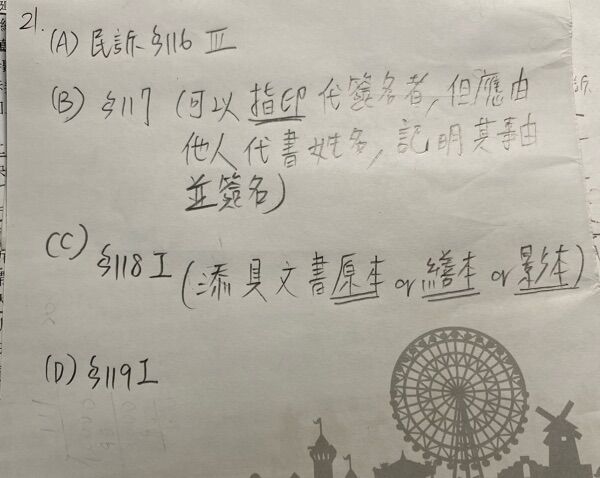 21.
(A) 民訴 §116 Ⅲ
(B) §117 (可以指印代簽名者, 但應由
他人代書姓名, 記明其事由
並簽名)
(C) §118 I (添具文書原本 or 繕本 or 影本)
(D) §119 I